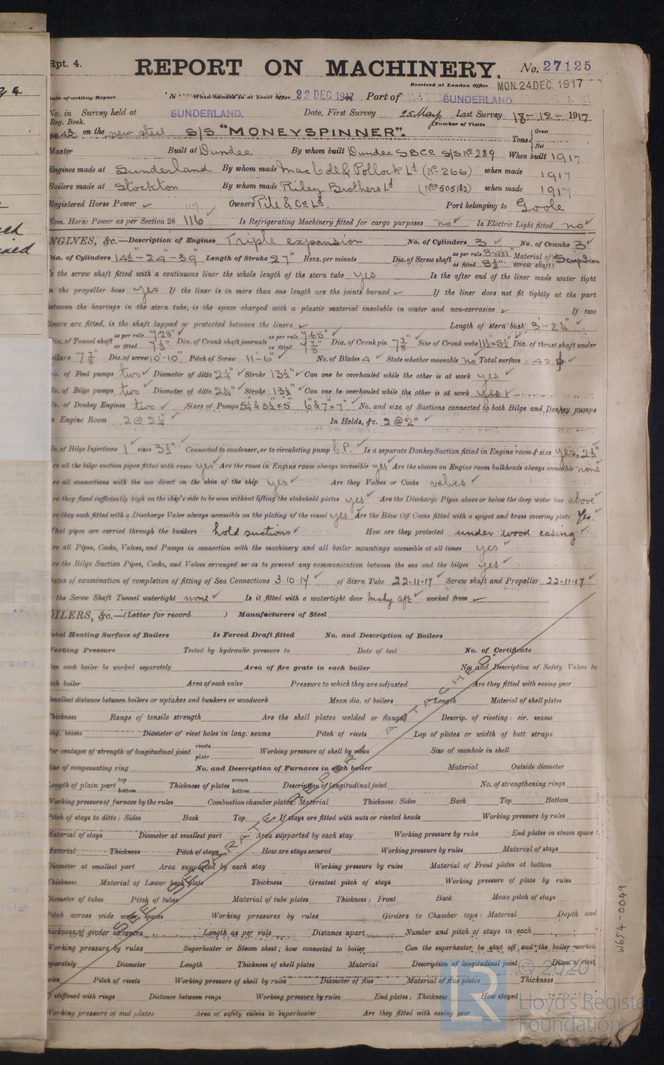 Rpt. 4.
REPORT ON MACHINERY.
No. 27125
Received at London Office MON. 24 DEC. 1917
Date of writing Report When handed in at Local Office 22 DEC 1917 Port of SUNDERLAND
No. in Survey held at SUNDERLAND. Date, First Survey 25 May Last Survey 18-12-1917
Reg. Book.
(Number of Visits
on the new steel S/S "MONEYSPINNER". Tons Gross Net
Master Built at Dundee By whom built Dundee S.B. Co S/S No 289 When built 1917
Engines made at Sunderland By whom made MacColl & Pollock Ld (No. 266) when made 1917
Boilers made at Stockton By whom made Riley Brothers Ld (No 5051/2) when made 1917
Registered Horse Power Owners Pile & Co Ld. Port belonging to Goole
Nom. Horse Power as per Section 28 116 Is Refrigerating Machinery fitted for cargo purposes no Is Electric Light fitted no
ENGINES, &c.—Description of Engines Triple expansion No. of Cylinders 3 No. of Cranks 3
Dia. of Cylinders 14½"-24-39" Length of Stroke 27" Revs. per minute Dia. of Screw shaft as per rule as fitted Material of screw shaft
Is the screw shaft fitted with a continuous liner the whole length of the stern tube yes Is the after end of the liner made water tight
in the propeller boss yes If the liner is in more than one length are the joints burned If the liner does not fit tightly at the part
between the bearings in the stern tube, is the space charged with a plastic material insoluble in water and non-corrosive If two
liners are fitted, is the shaft lapped or protected between the liners Length of stern bush 3'-2½"
Dia. of Tunnel shaft as per rule 7.28" as fitted 7½" Dia. of Crank shaft journals as per rule 7.65" as fitted 7⅞" Dia. of Crank pin 7⅞" Size of Crank webs Dia. of thrust shaft under
collars 7⅞" Dia. of screw 10'-10" Pitch of Screw 11'-6" No. of Blades 4 State whether moveable no Total surface 42
No. of Feed pumps two Diameter of ditto Stroke 13½" Can one be overhauled while the other is at work yes
No. of Bilge pumps two Diameter of ditto Stroke 13½" Can one be overhauled while the other is at work yes
No. of Donkey Engines two Sizes of Pumps No. and size of Suctions connected to both Bilge and Donkey pumps
In Engine Room 2 @ 2½" In Holds, &c. 2 @ 2"
No. of Bilge Injections 1 sizes 3½" Connected to condenser, or to circulating pump C.P. Is a separate Donkey Suction fitted in Engine room & size yes, 2½"
Are all the bilge suction pipes fitted with roses yes Are the roses in Engine room always accessible yes Are the sluices on Engine room bulkheads always accessible none
Are all connections with the sea direct on the skin of the ship yes Are they Valves or Cocks valves
Are they fixed sufficiently high on the ship's side to be seen without lifting the stokehold plates yes Are the Discharge Pipes above or below the deep water line above
Are they each fitted with a Discharge Valve always accessible on the plating of the vessel yes Are the Blow Off Cocks fitted with a spigot and brass covering plate Yes
What pipes are carried through the bunkers hold suctions How are they protected under wood casing
Are all Pipes, Cocks, Valves, and Pumps in connection with the machinery and all boiler mountings accessible at all times yes
Are the Bilge Suction Pipes, Cocks, and Valves arranged so as to prevent any communication between the sea and the bilges yes
Dates of examination of completion of fitting of Sea Connections 3.10.17 of Stern Tube 22-11-17 Screw shaft and Propeller 22-11-17
Is the Screw Shaft Tunnel watertight none Is it fitted with a watertight door mchy aft worked from
BOILERS, &c.—(Letter for record ) Manufacturers of Steel
Total Heating Surface of Boilers Is Forced Draft fitted No. and Description of Boilers
Working Pressure Tested by hydraulic pressure to Date of test No. of Certificate
Can each boiler be worked separately Area of fire grate in each boiler No. and Description of Safety Valves to
each boiler Area of each valve Pressure to which they are adjusted Are they fitted with easing gear
Smallest distance between boilers or uptakes and bunkers or woodwork Mean dia. of boilers Length Material of shell plates
Thickness Range of tensile strength Are the shell plates welded or flanged Descrip. of riveting: cir. seams
long. seams Diameter of rivet holes in long. seams Pitch of rivets Lap of plates or width of butt straps
Per centages of strength of longitudinal joint rivets plate Working pressure of shell by rules Size of manhole in shell
Size of compensating ring No. and Description of Furnaces in each boiler Material Outside diameter
Length of plain part top bottom Thickness of plates crown bottom Description of longitudinal joint No. of strengthening rings
Working pressure of furnace by the rules Combustion chamber plates: Material Thickness: Sides Back Top Bottom
Pitch of stays to ditto: Sides Back Top If stays are fitted with nuts or riveted heads Working pressure by rules
Material of stays Diameter at smallest part Area supported by each stay Working pressure by rules End plates in steam space
Material Thickness Pitch of stays How are stays secured Working pressure by rules Material of stays
Diameter at smallest part Area supported by each stay Working pressure by rules Material of Front plates at bottom
Thickness Material of Lower back plate Thickness Greatest pitch of stays Working pressure of plate by rules
Diameter of tubes Pitch of tubes Material of tube plates Thickness: Front Back Mean pitch of stays
Pitch across wide water spaces Working pressures by rules Girders to Chamber tops: Material Depth and
thickness of girder at centre Length as per rule Distance apart Number and pitch of stays in each
Working pressure by rules Superheater or Steam chest; how connected to boiler Can the superheater be shut off and the boiler worked
separately Diameter Length Thickness of shell plates Material Description of longitudinal joint Diam. of rivet
holes Pitch of rivets Working pressure of shell by rules Diameter of flue Material of flue plates Thickness
If stiffened with rings Distance between rings Working pressure by rules End plates: Thickness How stayed
Working pressure of end plates Area of safety valves to superheater Are they fitted with easing gear
SEE SEPARATE REPORT ATTACHED.
W654-0049
© 2020
Lloyd's Register
Foundation